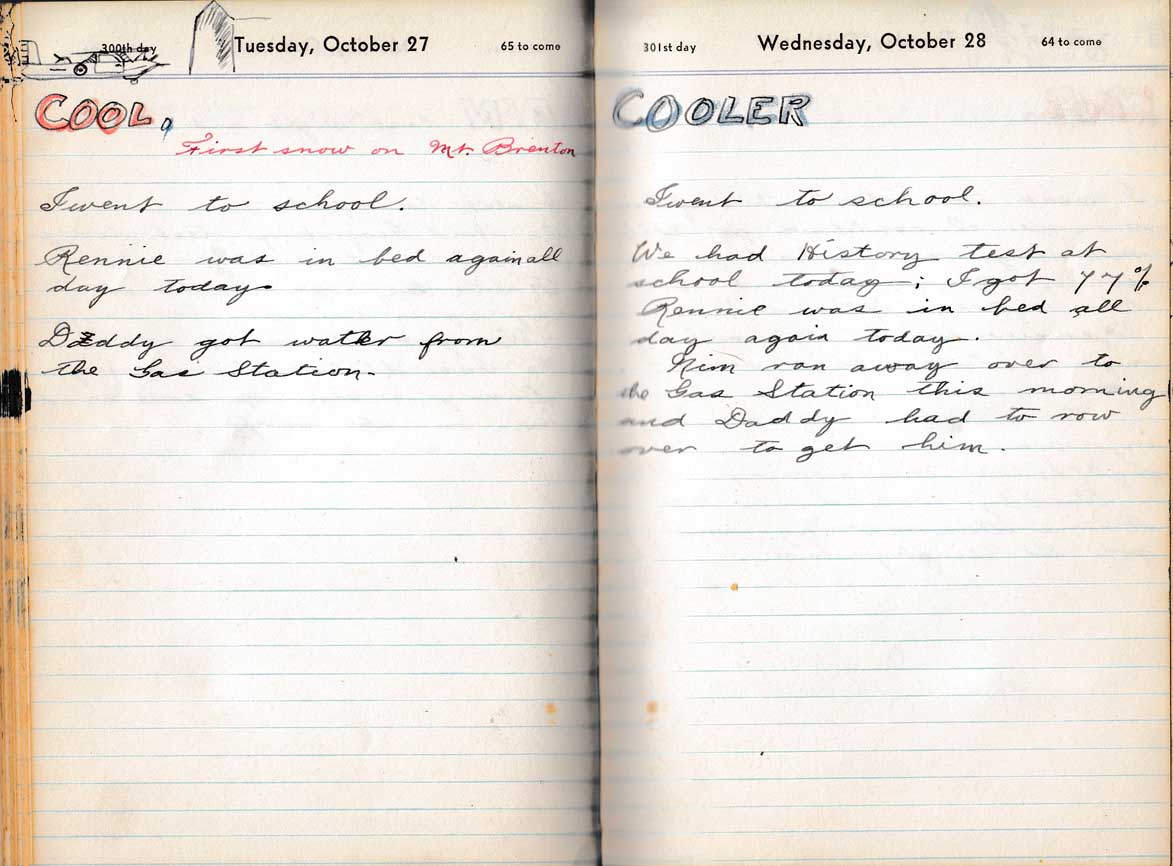 300th day Tuesday, October 27 65 to come
COOL,
First snow on Mt. Brenton
I went to school.
Rennie was in bed again all
day today.
Daddy got water from
the Gas Station.
301st day Wednesday, October 28 64 to come
COOLER
I went to school.
We had History test at
school today; I got 77%
Rennie was in bed all
day again today.
ran away over to
the Gas Station this morning
and Daddy had to row
over to get him.